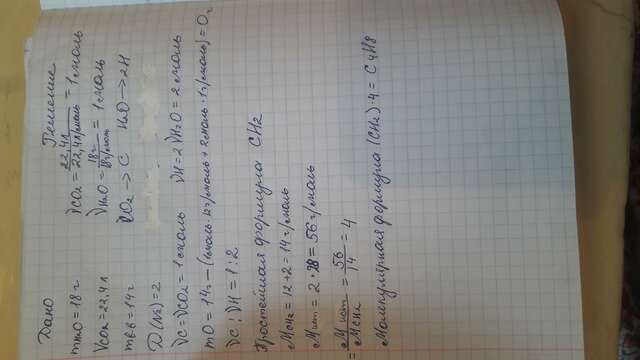 Дано
mH2O = 18 г
VCO2 = 22,4 л
mв-в = 14 г
D(N2) = 2
Решение
νCO2 = 22,4 л / 22,4 л/моль = 1 моль
νH2O = 18 г / 18 г/моль = 1 моль
CO2 → C H2O → 2H
νC = νCO2 = 1 моль νH = 2νH2O = 2 моль
mO = 14 г – (1 моль · 12 г/моль + 2 моль · 1 г/моль) = 0 г
νC : νH = 1 : 2
Простейшая формула CH2
MCH2 = 12 + 2 = 14 г/моль
Mист = 2 · 28 = 56 г/моль
= Mист / MCH2 = 56 / 14 = 4
Молекулярная формула (CH2) · 4 = C4H8